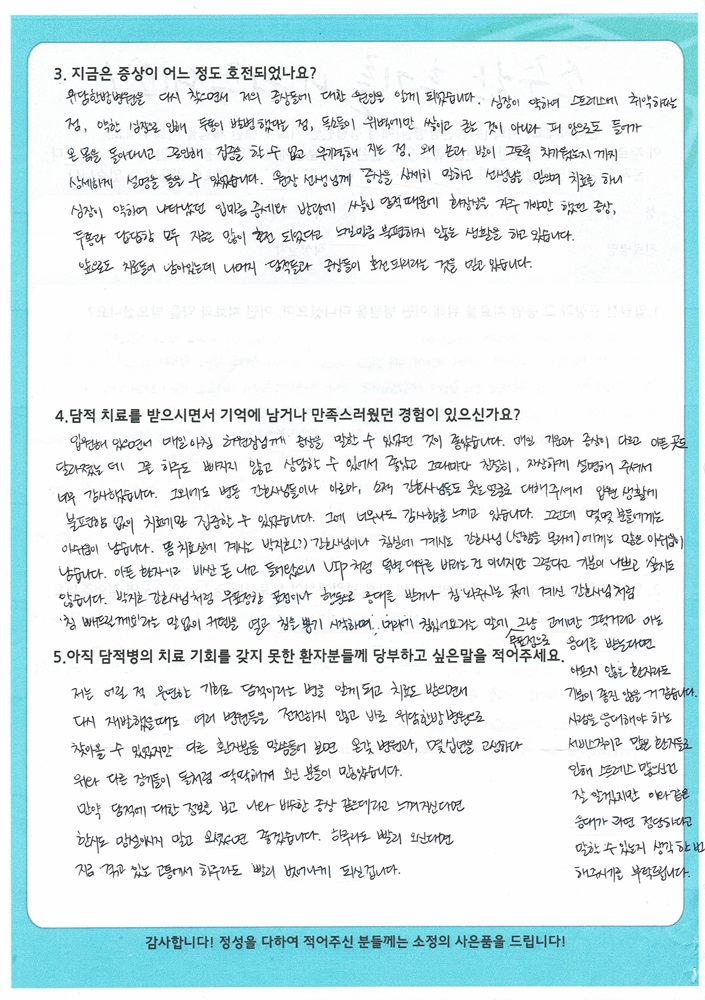 3. 지금은 증상이 어느 정도 호전되었나요?
위담한방병원을 다시 찾으면서 저의 증상들에 대한 원인을 알게 되었습니다. 심장이 약하여 스트레스에 취약하다는
점, 약한 심장으로 인해 두통이 발병했다는 점, 독소들이 위병에만 쌓이고 굳는 것이 아니라 피 안으로도 들어가
온 몸을 돌아다니고 그로인해 집중을 할 수 없고 무기력해 지는 점, 왜 손과 발이 그토록 차가웠는지 까지
상세하게 설명을 들을 수 있었습니다. 원장 선생님께 증상을 상세히 말하고 선생님을 믿으며 치료를 하니
심장이 약하여 나타났던 입마름 증세와 방광에 쌓인 담적 때문에 화장실을 자주 가야만 했던 증상,
두통과 답답함 모두 지금은 많이 호전 되었다고 느낄만큼 불편하지 않은 생활을 하고 있습니다.
앞으로도 치료들이 남아있는데 나머지 담적들과 증상들이 호전 되리라는 것을 믿고 있습니다.
4.담적 치료를 받으시면서 기억에 남거나 만족스러웠던 경험이 있으신가요?
입원해 있으면서 매일아침 허원장님께 증상을 말할 수 있었던 것이 좋았습니다. 매일 기운과 증상이 다르고 아픈 곳도
달라졌는데 그를 하루도 빠지지 않고 상담할 수 있어서 좋았고 그때마다 친절히, 자상하게 설명해 주셔서
너무 감사했습니다. 그외에도 병동 간호사님들이나 아로마, 소적 간호사님들도 웃는 얼굴로 대해주셔서 입원 생활에
불편함 없이 치료에만 집중할 수 있었습니다. 그에 너무나도 감사함을 느끼고 있습니다. 그런데 몇몇 분들에게는
아쉬움이 남습니다. 물 치료실에 계시는 박지흔(?) 간호사님이나 침실에 계시는 간호사님 (성함을 몰라서)에게는 많은 아쉬움이
남습니다. 아픈 환자이고 비싼 돈 내고 들어왔으니 VIP처럼 특별 대우를 바라는 건 아니지만 그렇다고 기분이 나쁘고 싶지도
않습니다. 간호사님처럼 무표정한 표정이나 행동으로 응대를 받거나 침 놔주시는 곳에 계신 간호사님처럼
'침 빼드릴게요'라는 말 없이 커텐을 열고 침을 뽑기 시작하며, 머리에 침있어요라는 말에 그냥 고개만 끄덕거리고 마는
무표정으로 응대를 받는다면
아프지 않은 환자라도
기분이 좋진 않을 거 같습니다.
사람을 응대해야 하는
서비스직이고 많은 환자들로
인해 스트레스 많으신건
잘 알겠지만 이와같은
응대가 과연 정당하다고
말할 수 있는지 생각 한 번
해주시기를 부탁드립니다.
5.아직 담적병의 치료 기회를 갖지 못한 환자분들께 당부하고 싶은말을 적어주세요.
저는 어릴 적 우연한 기회로 담적이라는 병을 알게 되고 치료도 받으면서
다시 재발했을때도 여러 병원들을 전전하지 않고 바로 위담한방병원으로
찾아올 수 있었지만 다른 환자분들 말씀들어 보면 온갖 병원과, 몇십년을 고생하다
위와 다른 장기들이 돌처럼 딱딱해져 오신 분들이 많았습니다.
만약 담적에 대한 정보를 보고 나와 비슷한 증상 같은데라고 느껴지신다면
한시도 망설이시지 말고 오셨으면 좋겠습니다. 하루라도 빨리 오신다면
지금 겪고 있는 고통에서 하루라도 빨리 벗어나게 되실겁니다.
감사합니다! 정성을 다하여 적어주신 분들께는 소정의 사은품을 드립니다!